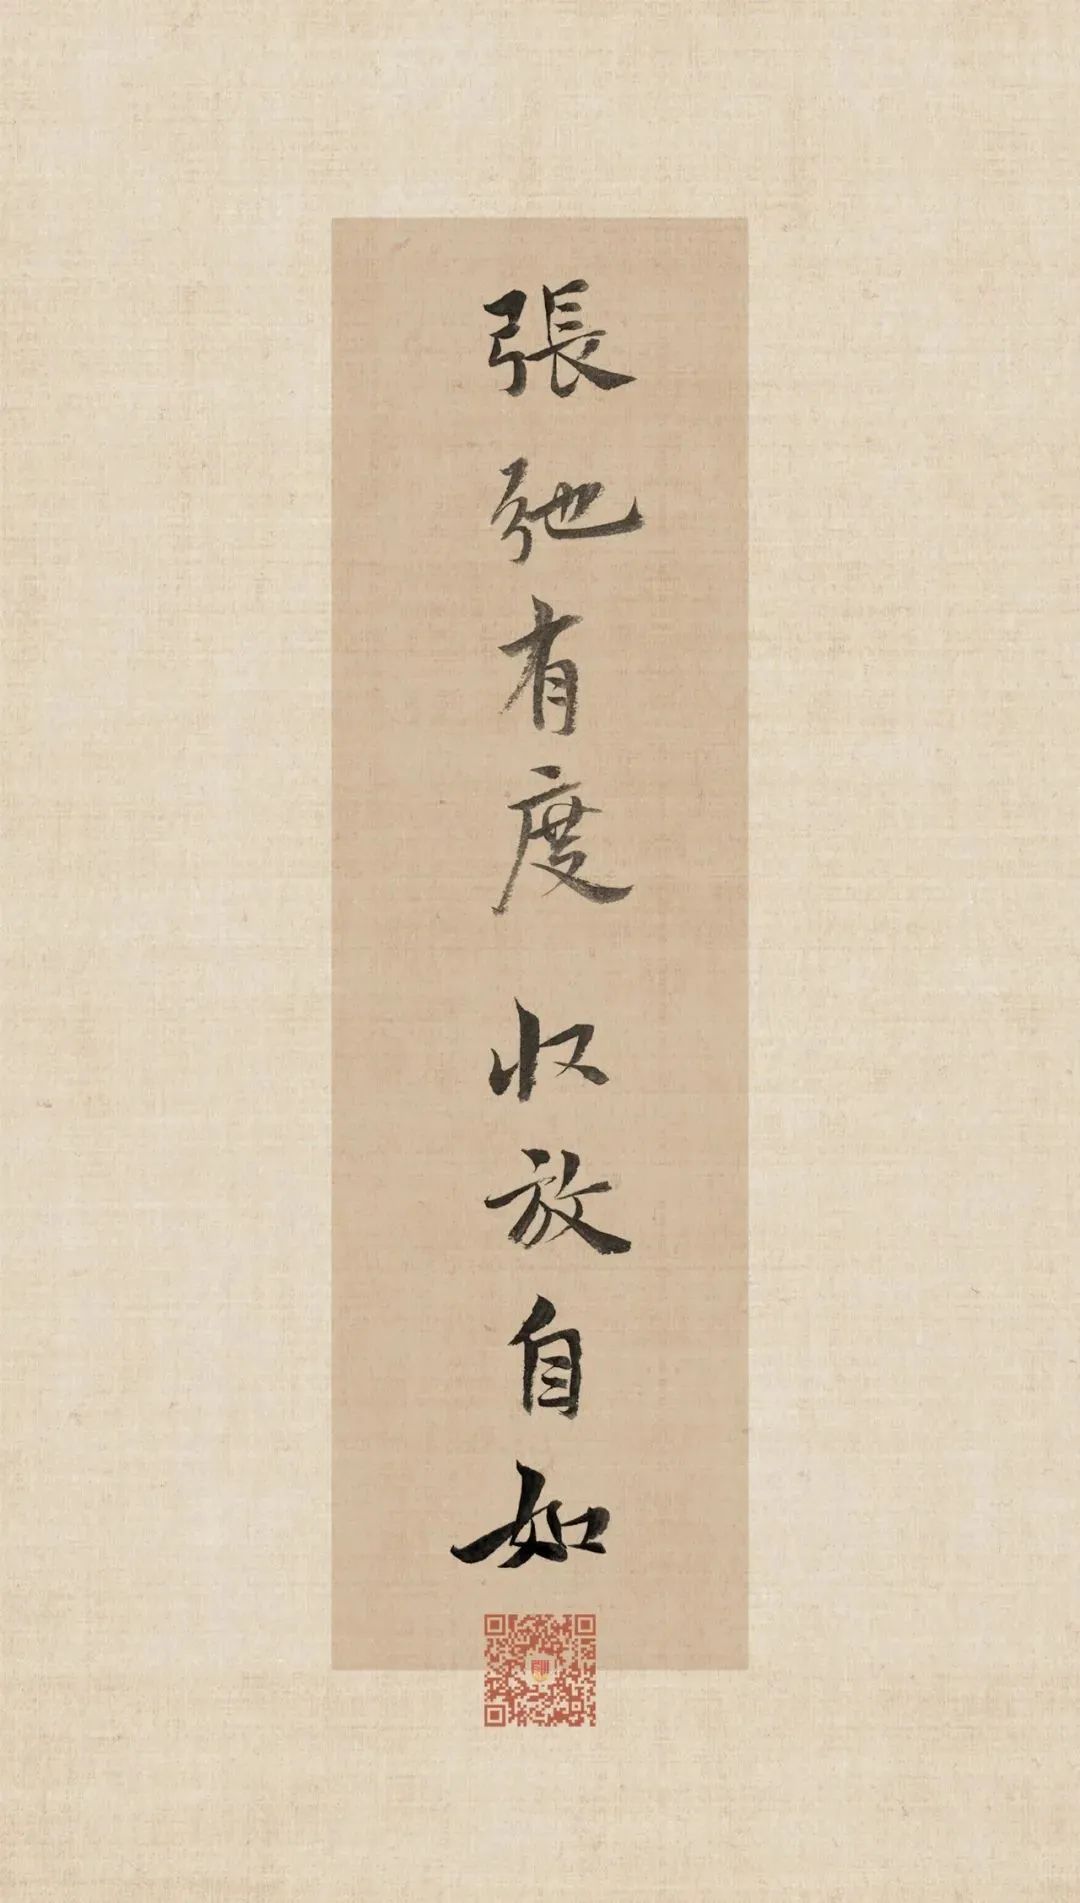 張弛有度 收放自如